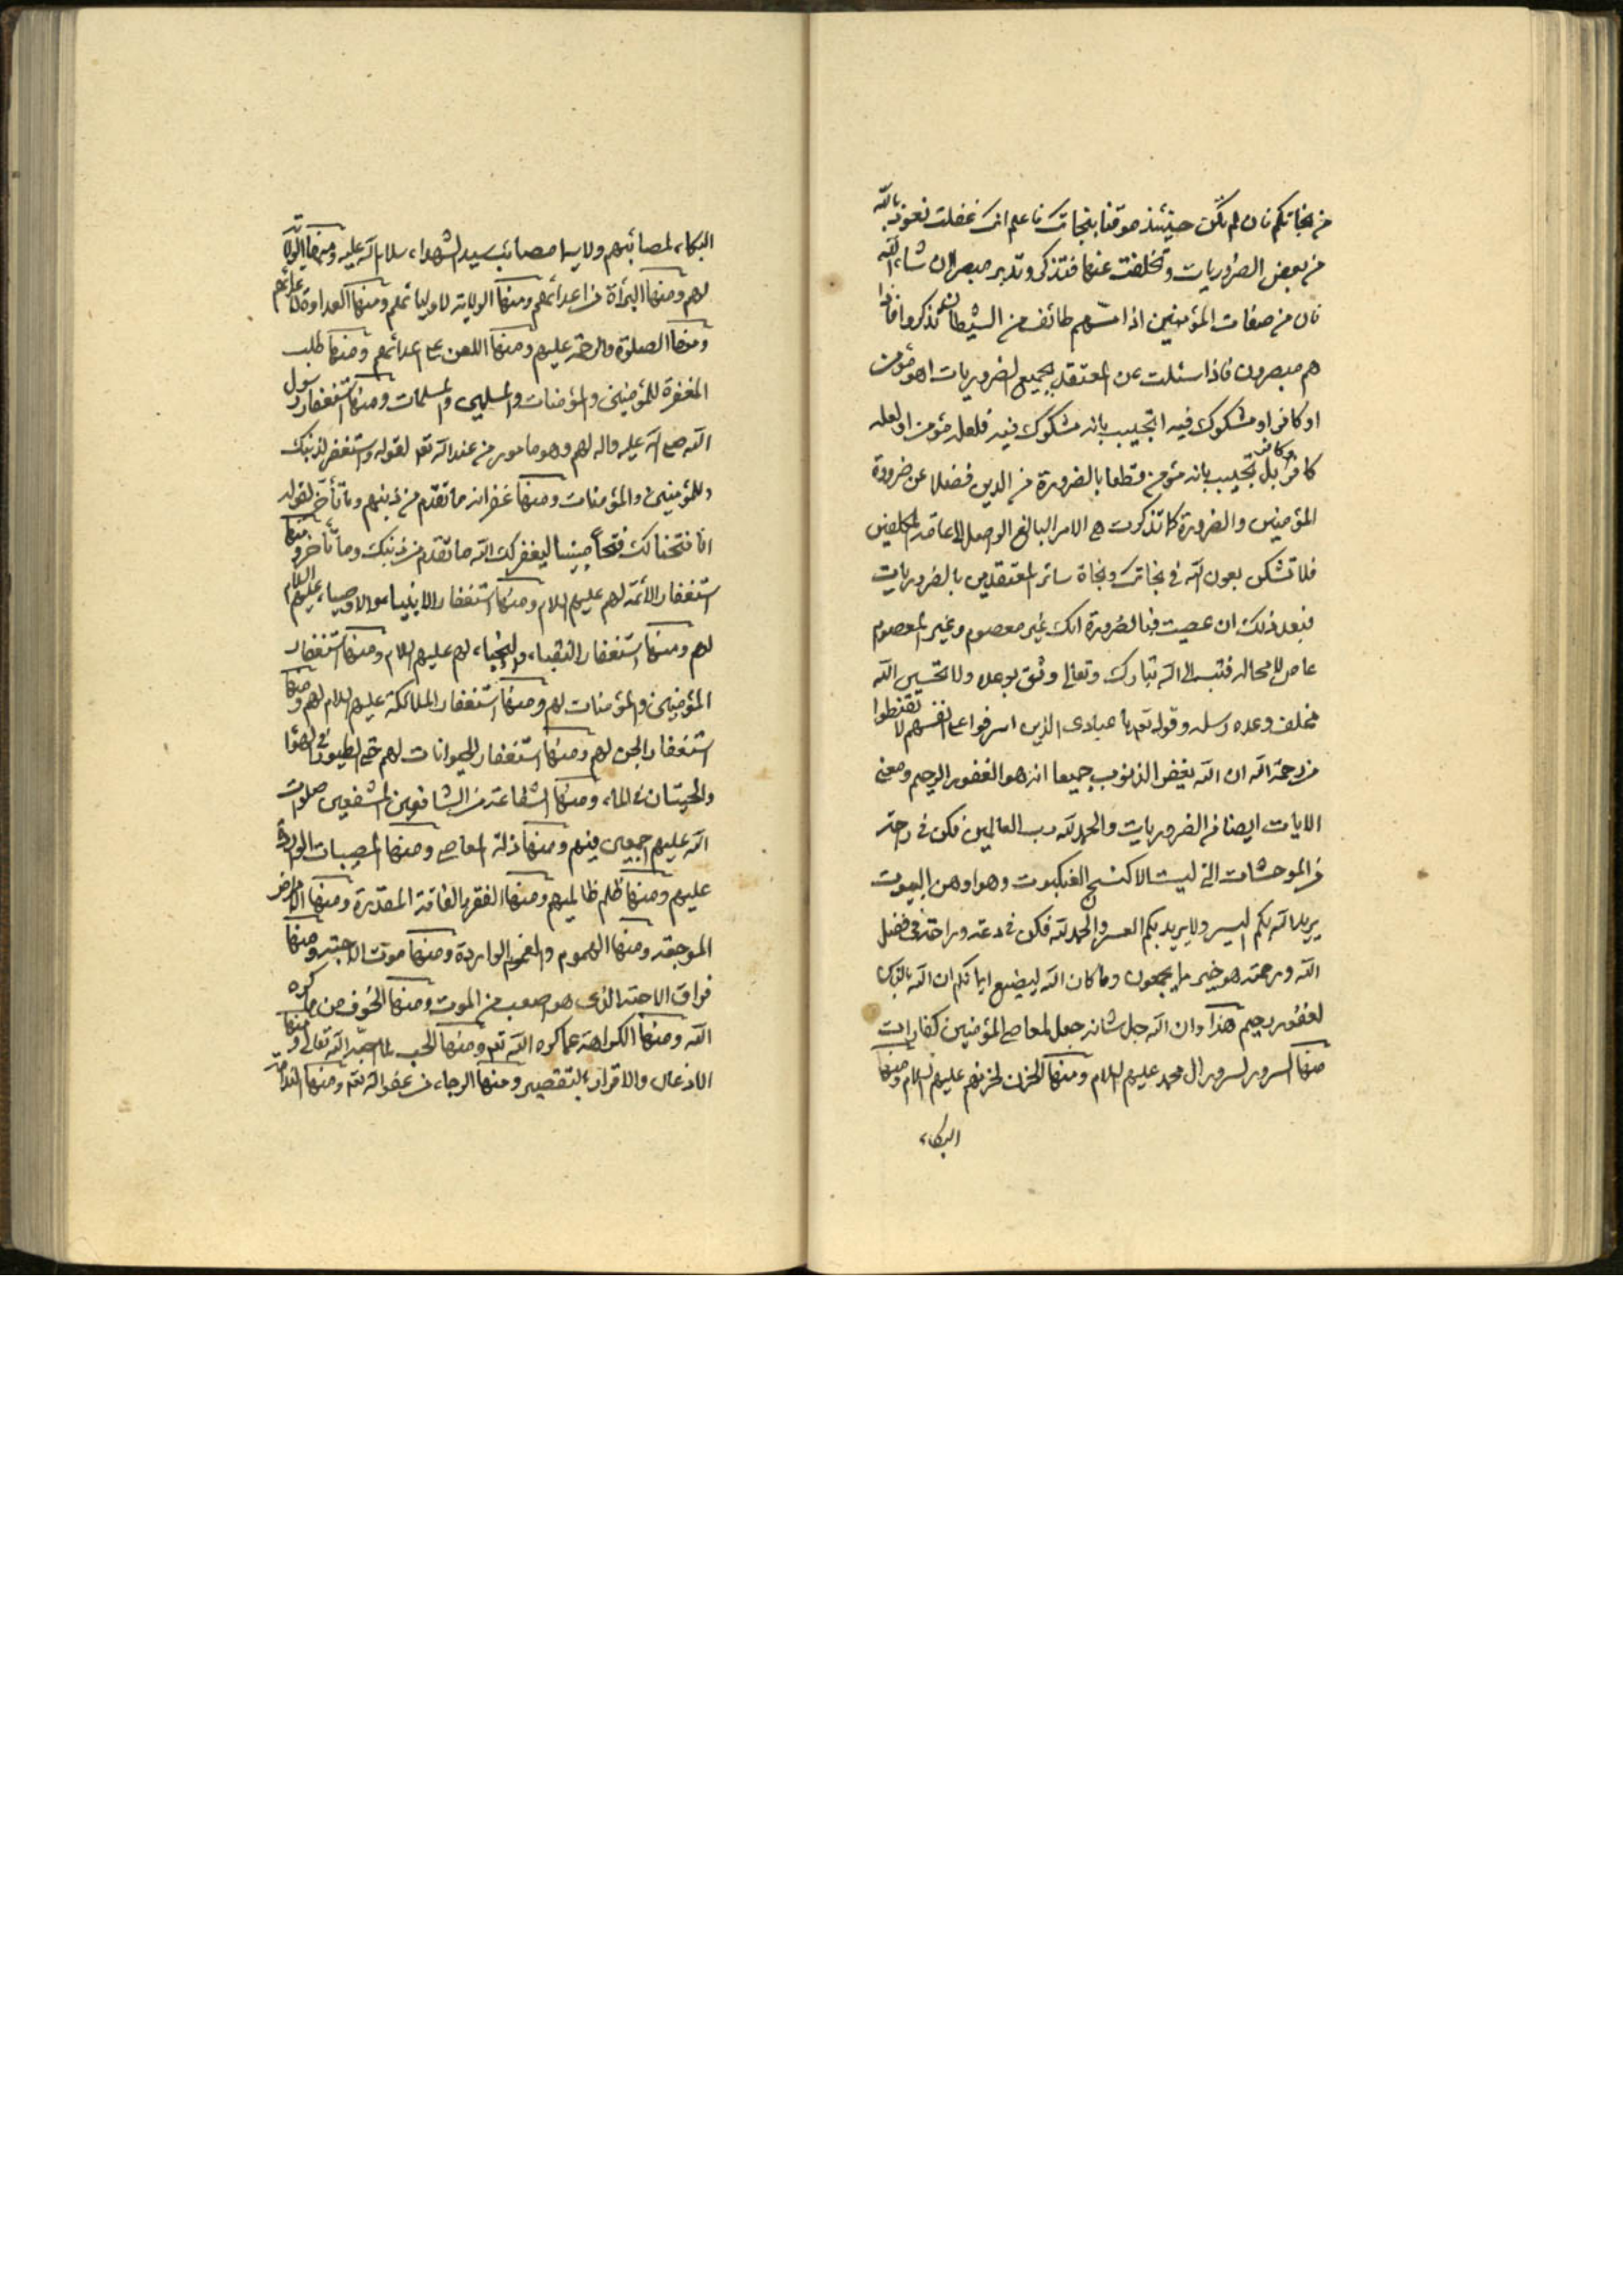 من نجاتكم فان لم تكن حينئذ موقنا بنجاتك فاعلم انك غفلت نعوذ بالله
من بعض الضروريات وتخلفت عنها فتذكر وتدبر مبصرا ان شاء الله
فان من صفات المؤمنين اذا مسهم طائف من الشيطان تذكروا فاذا
هم مبصرون فاذا سئلت عن المعتقد بجميع الضروريات اهو مؤمن
او كافر او مشكوك فيه اتجيب بانه مشكوك فيه فلعله مؤمن او لعله
كافر بل تجيب بانه مؤمن قطعا بالضرورة من الدين فضلا عن ضرورة
المؤمنين والضرورة كما تذكرت هي الامر البالغ الواصل الى عامة المكلفين
فلا تشكن بعون الله في نجاتك ونجاة سائر المعتقدين بالضروريات
فبعد ذلك ان عصيت فبالضرورة انك غير معصوم وغير المعصوم
عاص لا محالة فتب الى الله تبارك وتعالى وثق بوعده ولا تحسبن الله
مخلف وعده رسله وقوله تعم يا عبادى الذين اسرفوا على انفسهم لا تقنطوا
من رحمة الله ان الله يغفر الذنوب جميعا انه هو الغفور الرحيم ومعنى
الايات ايضا من الضروريات والحمد لله رب العالمين فكن في راحة
من الموحشات التي ليست الا كنسج العنكبوت وهو اوهن البيوت
يريد الله بكم اليسر ولا يريد بكم العسر والحمد لله فكن في دعة وراحة في فضل
الله ورحمته هو خير مما يجمعون وما كان الله ليضيع ايمانكم ان الله بالناس
لغفور رحيم هذا وان الله جل شانه جعل لمعاصى المؤمنين كفارات
منها السرور لسرور ال محمد عليهم السلام ومنها الحزن لحزنهم عليهم السلام ومنها
البكاء
البكاء لمصائبهم ولا سيما مصائب سيد الشهداء سلام الله عليه ومنها التولا
لهم ومنها البرأة من اعدائهم ومنها الولاية لاوليائهم ومنها العداوة لاعدائهم
ومنها الصلوة والرحمة عليهم ومنها اللعن على اعدائهم ومنها طلب
المغفرة للمؤمنين والمؤمنات والمسلمين والمسلمات ومنها استغفار رسول
الله صلى الله عليه واله لهم وهو مامور من عند الله تعم لقوله واستغفر لذنبك
وللمؤمنين والمؤمنات ومنها غفرانه ما تقدم من ذنبهم وما تأخر لقوله
انا فتحنا لك فتحا مبينا ليغفر لك الله ما تقدم من ذنبك وما تأخر ومنها
استغفار الأئمة لهم عليهم السلام ومنها استغفار الانبياء والاوصياء عليهم السلام
لهم ومنها استغفار النقباء والنجباء لهم عليهم السلام ومنها استغفار
المؤمنين والمؤمنات لهم ومنها استغفار الملائكة عليهم السلام لهم ومنها
استغفار الجن لهم ومنها استغفار الحيوانات لهم حتى الطيور في الهواء
والحيتان في الماء ومنها الشفاعة من الشافعين المشفعين صلوات
الله عليهم اجمعين فيهم ومنها ذلة المعاصى ومنها المصيبات الواردة
عليهم ومنها ظلم ظالميهم ومنها الفقر والفاقة المقدرة ومنها الامراض
الموجعة ومنها الهموم والغموم الواردة ومنها موت الاحبة ومنها
فراق الاحبة الذى هو اصعب من الموت ومنها الخوف من ما كره
الله ومنها الكراهة عما كره الله تعم ومنها الحب لما احب الله تعالى ومنها
الاذعان والاقرار بالتقصير ومنها الرجاء من عفو الله تعم ومنها الندامة